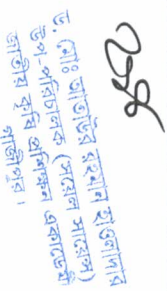 ড. মোঃ আতাউর রহমান হাওলাদার
উপ-পরিচালক (সয়েল সায়েন্স)
জাতীয় কৃষি প্রশিক্ষণ একাডেমী
গাজীপুর।